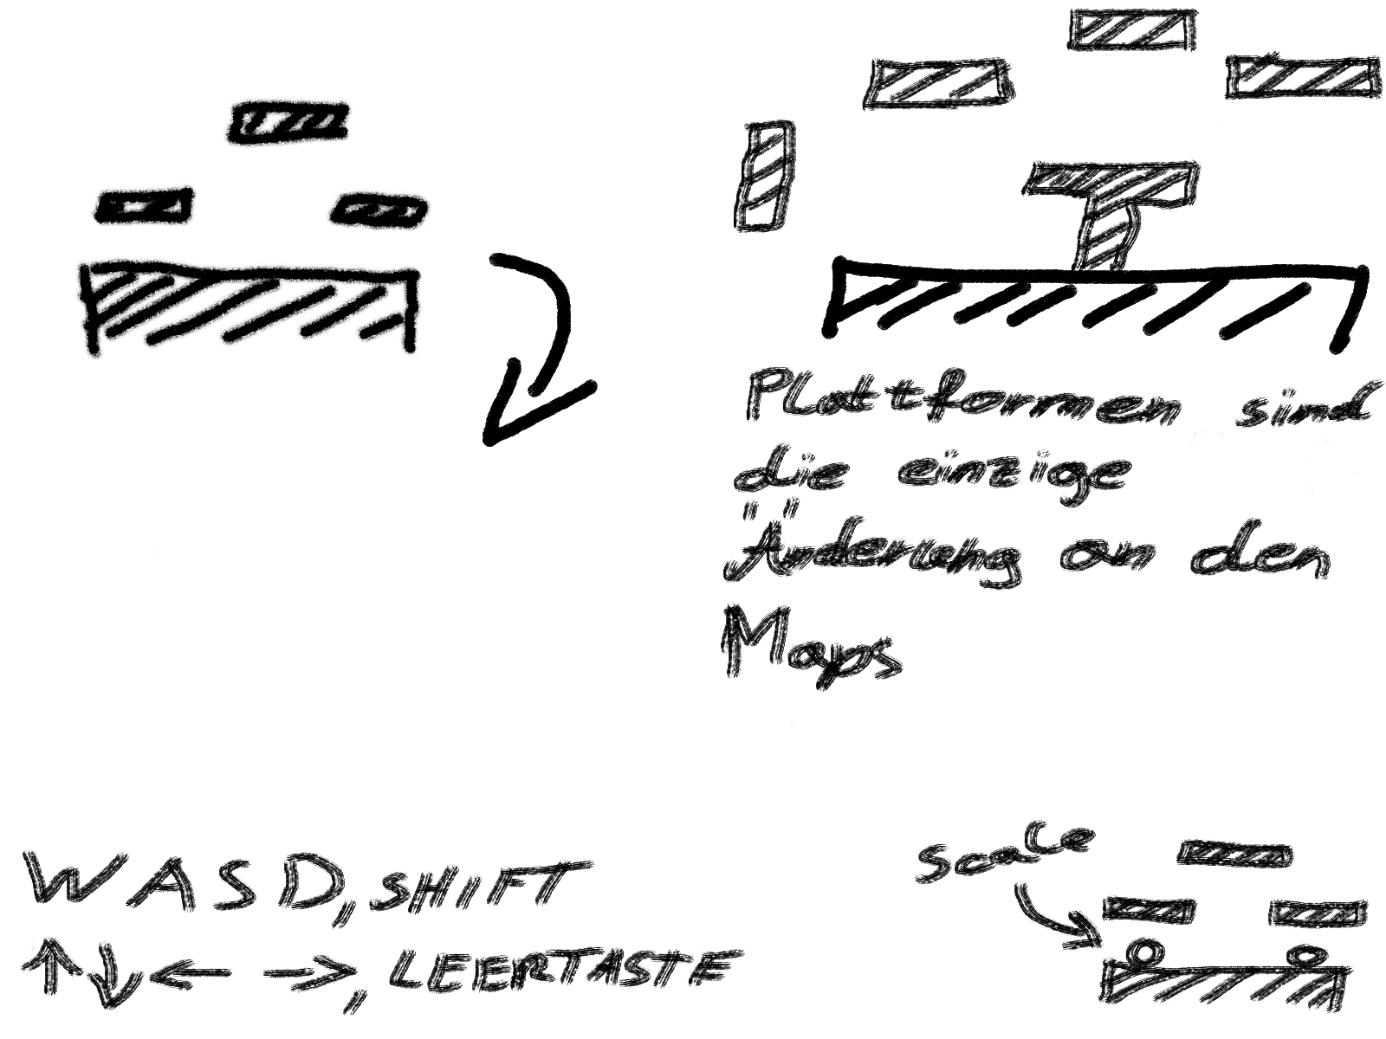 Plattformen sind
die einzige
Änderung an den
Maps
WASD, SHIFT
↑ ↓ ← →, LEERTASTE
Scale